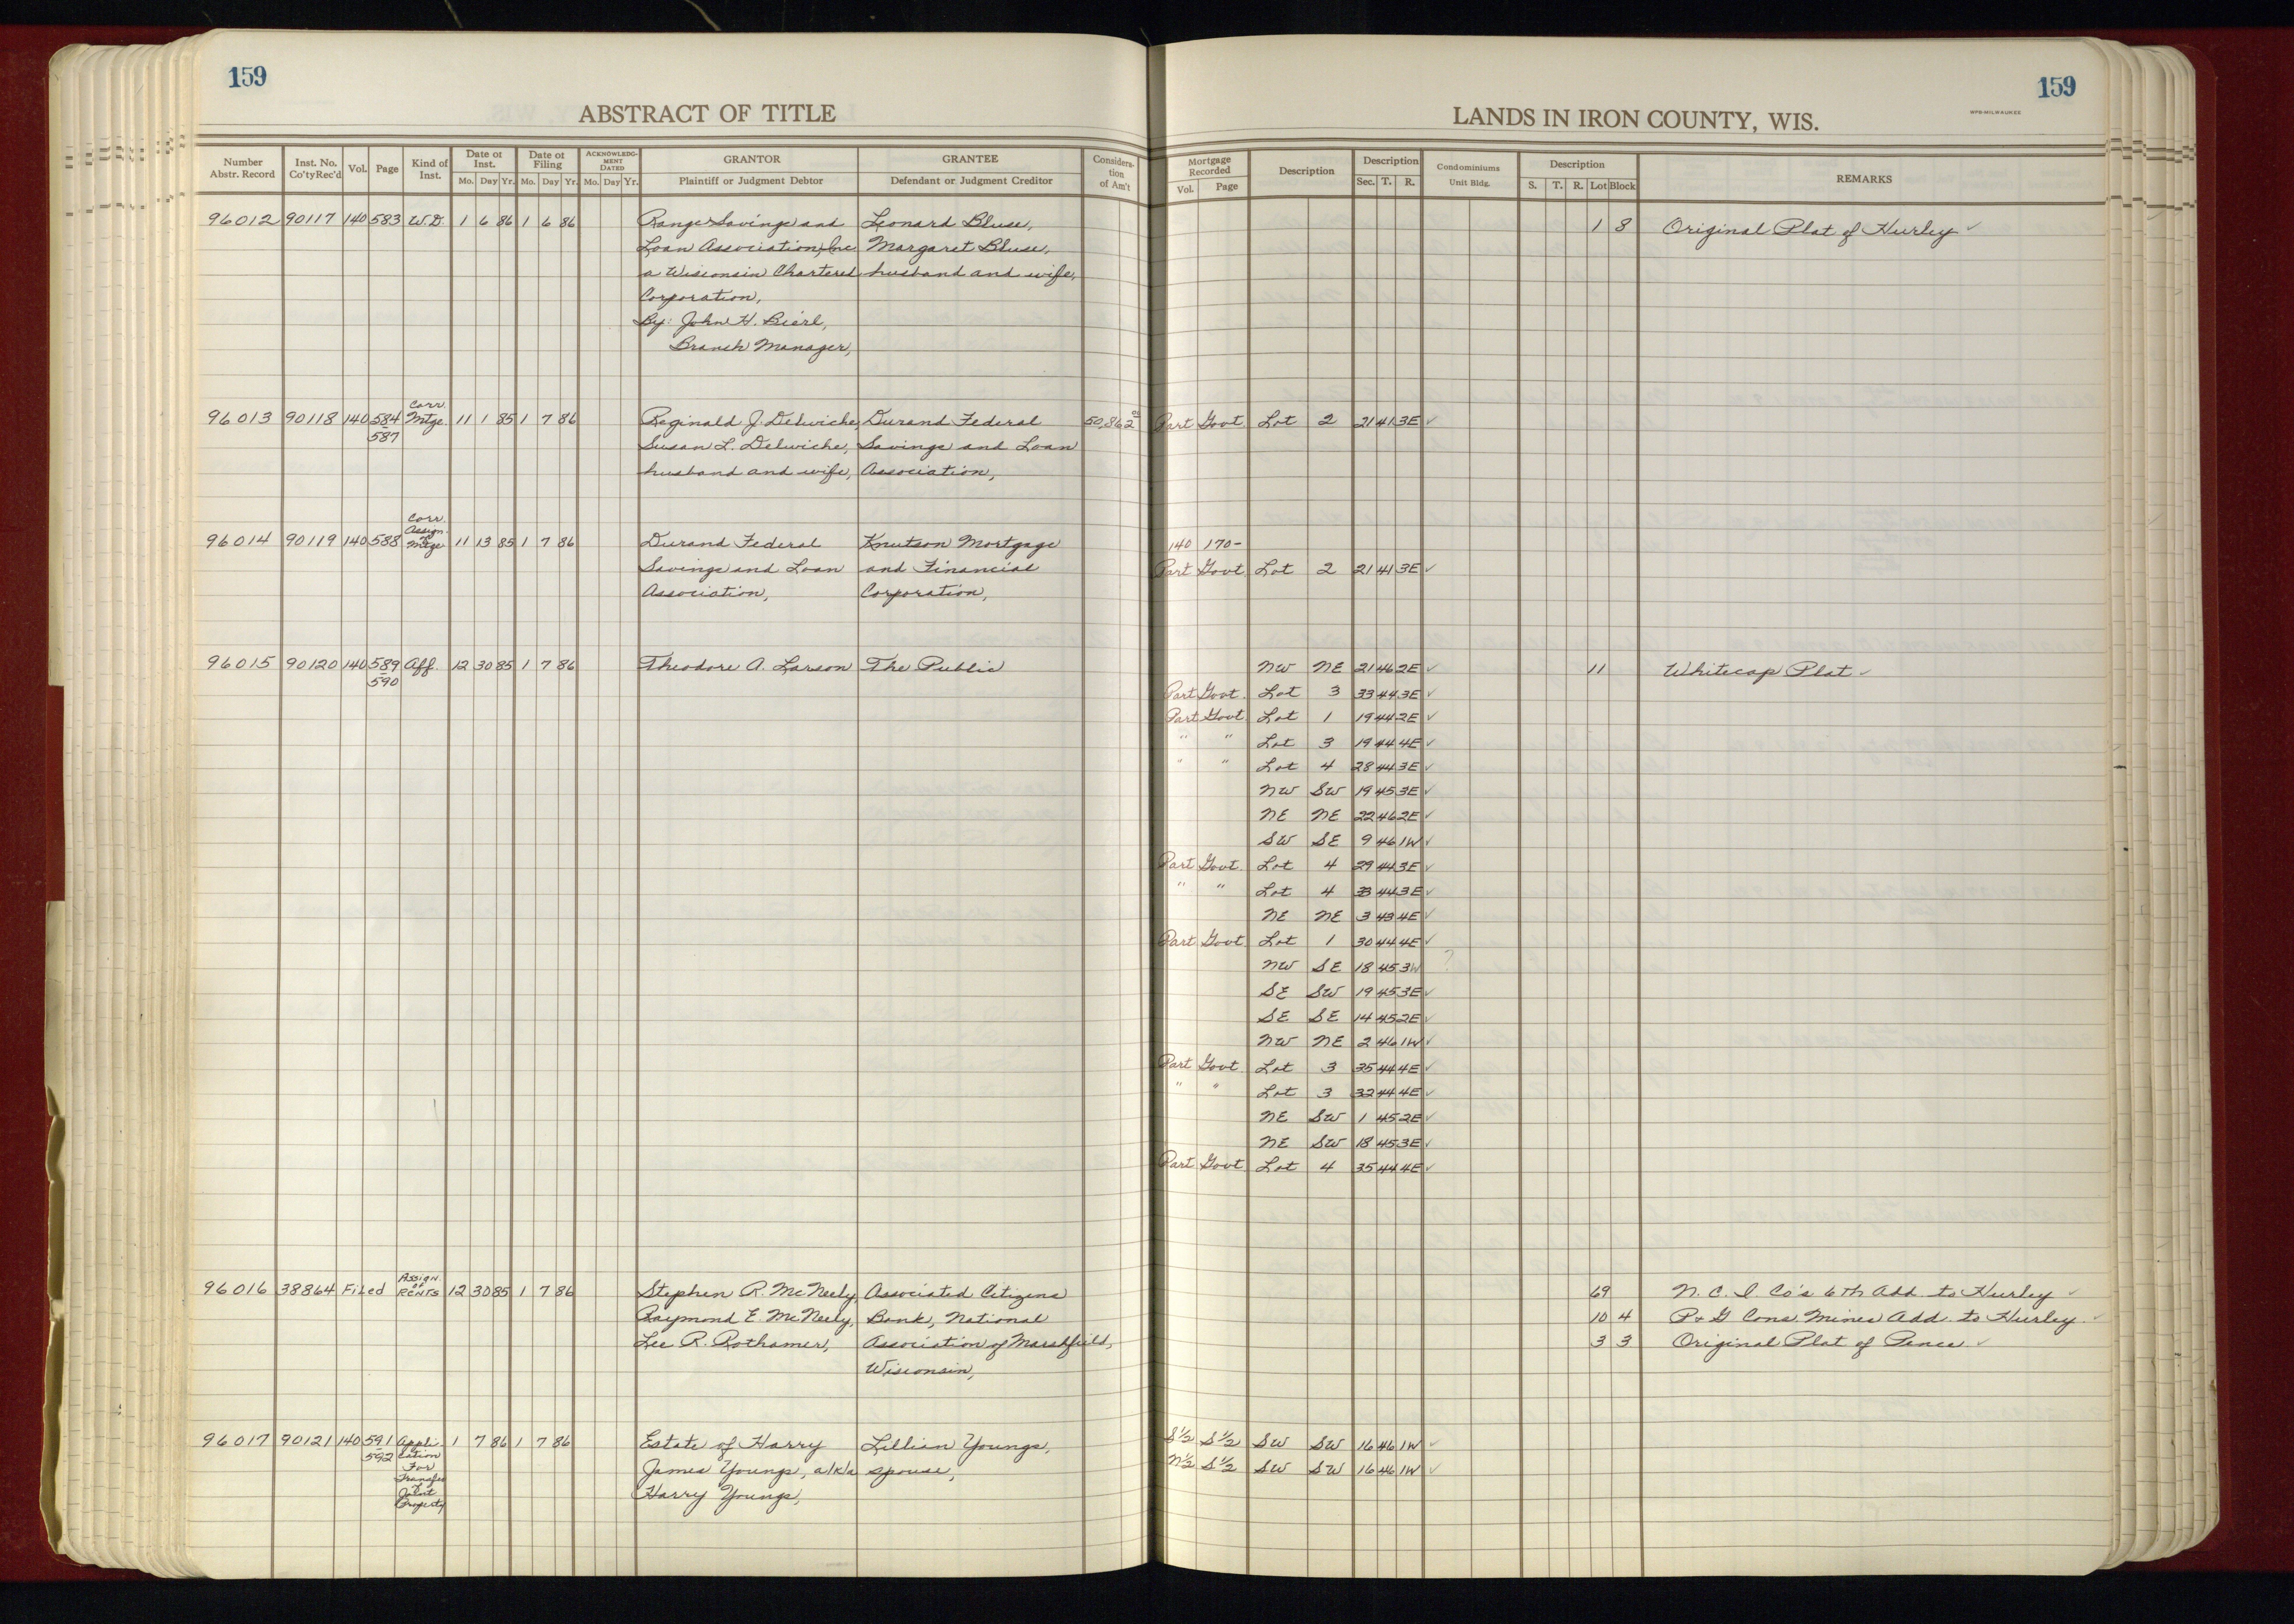 159
ABSTRACT OF TITLE
Number Abstr. Record
Inst. No. Co'ty Rec'd
Vol.
Page
Kind of Inst.
Date of Inst.
Mo. Day Yr.
Date of Filing
Mo. Day Yr.
ACKNOWLEDG-MENT DATED
Mo. Day Yr.
GRANTOR
Plaintiff or Judgment Debtor
GRANTEE
Defendant or Judgment Creditor
Considera-tion of Am't
96012 90117 140 583 W.D. 1 6 86 1 6 86 Range Savings and Leonard Bluse,
Loan Association, Inc Margaret Bluse,
a Wisconsin Chartered husband and wife,
Corporation,
By: John H. Bierl,
Branch Manager,
Corr.
96013 90118 140 584 Mtge. 11 1 85 1 7 86 Reginald J. Delwiche, Durand Federal 50,862.00
587 Susan L. Delwiche, Savings and Loan
husband and wife, Association,
Corr.
Assign.
of
96014 90119 140 588 Mtge 11 13 85 1 7 86 Durand Federal Knutson Mortgage
Savings and Loan and Financial
Association, Corporation,
96015 90120 140 589 Aff. 12 30 85 1 7 86 Theodore A. Larson The Public
590
Assign.
of
96016 38864 Filed RENTS 12 30 85 1 7 86 Stephen R. McNeely, Associated Citizens
Raymond E. McNeely, Bank, National
Lee R. Rothamer, Association of Marshfield,
Wisconsin,
96017 90121 140 591 Appli- 1 7 86 1 7 86 Estate of Harry Lillian Youngs,
592 cation
For James Youngs, a/k/a spouse,
Transfer
of Harry Youngs,
Joint
Property
159
LANDS IN IRON COUNTY, WIS.
WPB-MILWAUKEE
Mortgage Recorded
Vol. Page
Description
Description
Sec. T. R.
Condominiums
Unit Bldg.
Description
S. T. R. Lot Block
REMARKS
1 8 Original Plat of Hurley ✓
Part Govt Lot 2 21 41 3E ✓
140 170-
Part Govt Lot 2 21 41 3E ✓
NW NE 21 46 2E ✓ 11 Whitecap Plat ✓
Part Govt. Lot 3 33 44 3E ✓
Part Govt Lot 1 19 44 2E ✓
" " Lot 3 19 44 4E ✓
" " Lot 4 28 44 3E ✓
NW SW 19 45 3E ✓
NE NE 22 46 2E ✓
SW SE 9 46 1W ✓
Part Govt. Lot 4 29 44 3E ✓
" " Lot 4 33 44 3E ✓
NE NE 3 43 4E ✓
Part Govt Lot 1 30 44 4E ✓
NW SE 18 45 3W ?
SE SW 19 45 3E ✓
SE SE 14 45 2E ✓
NW NE 2 46 1W ✓
Part Govt. Lot 3 35 44 4E ✓
" " Lot 3 32 44 4E ✓
NE SW 1 45 2E ✓
NE SW 18 45 3E ✓
Part Govt Lot 4 35 44 4E ✓
69 N. C. I. Co's 6th Add. to Hurley ✓
10 4 P & G Cons. Mines Add. to Hurley. ✓
3 3 Original Plat of Pence ✓
S½ S½ SW SW 16 46 1W ✓
N½ S½ SW SW 16 46 1W ✓